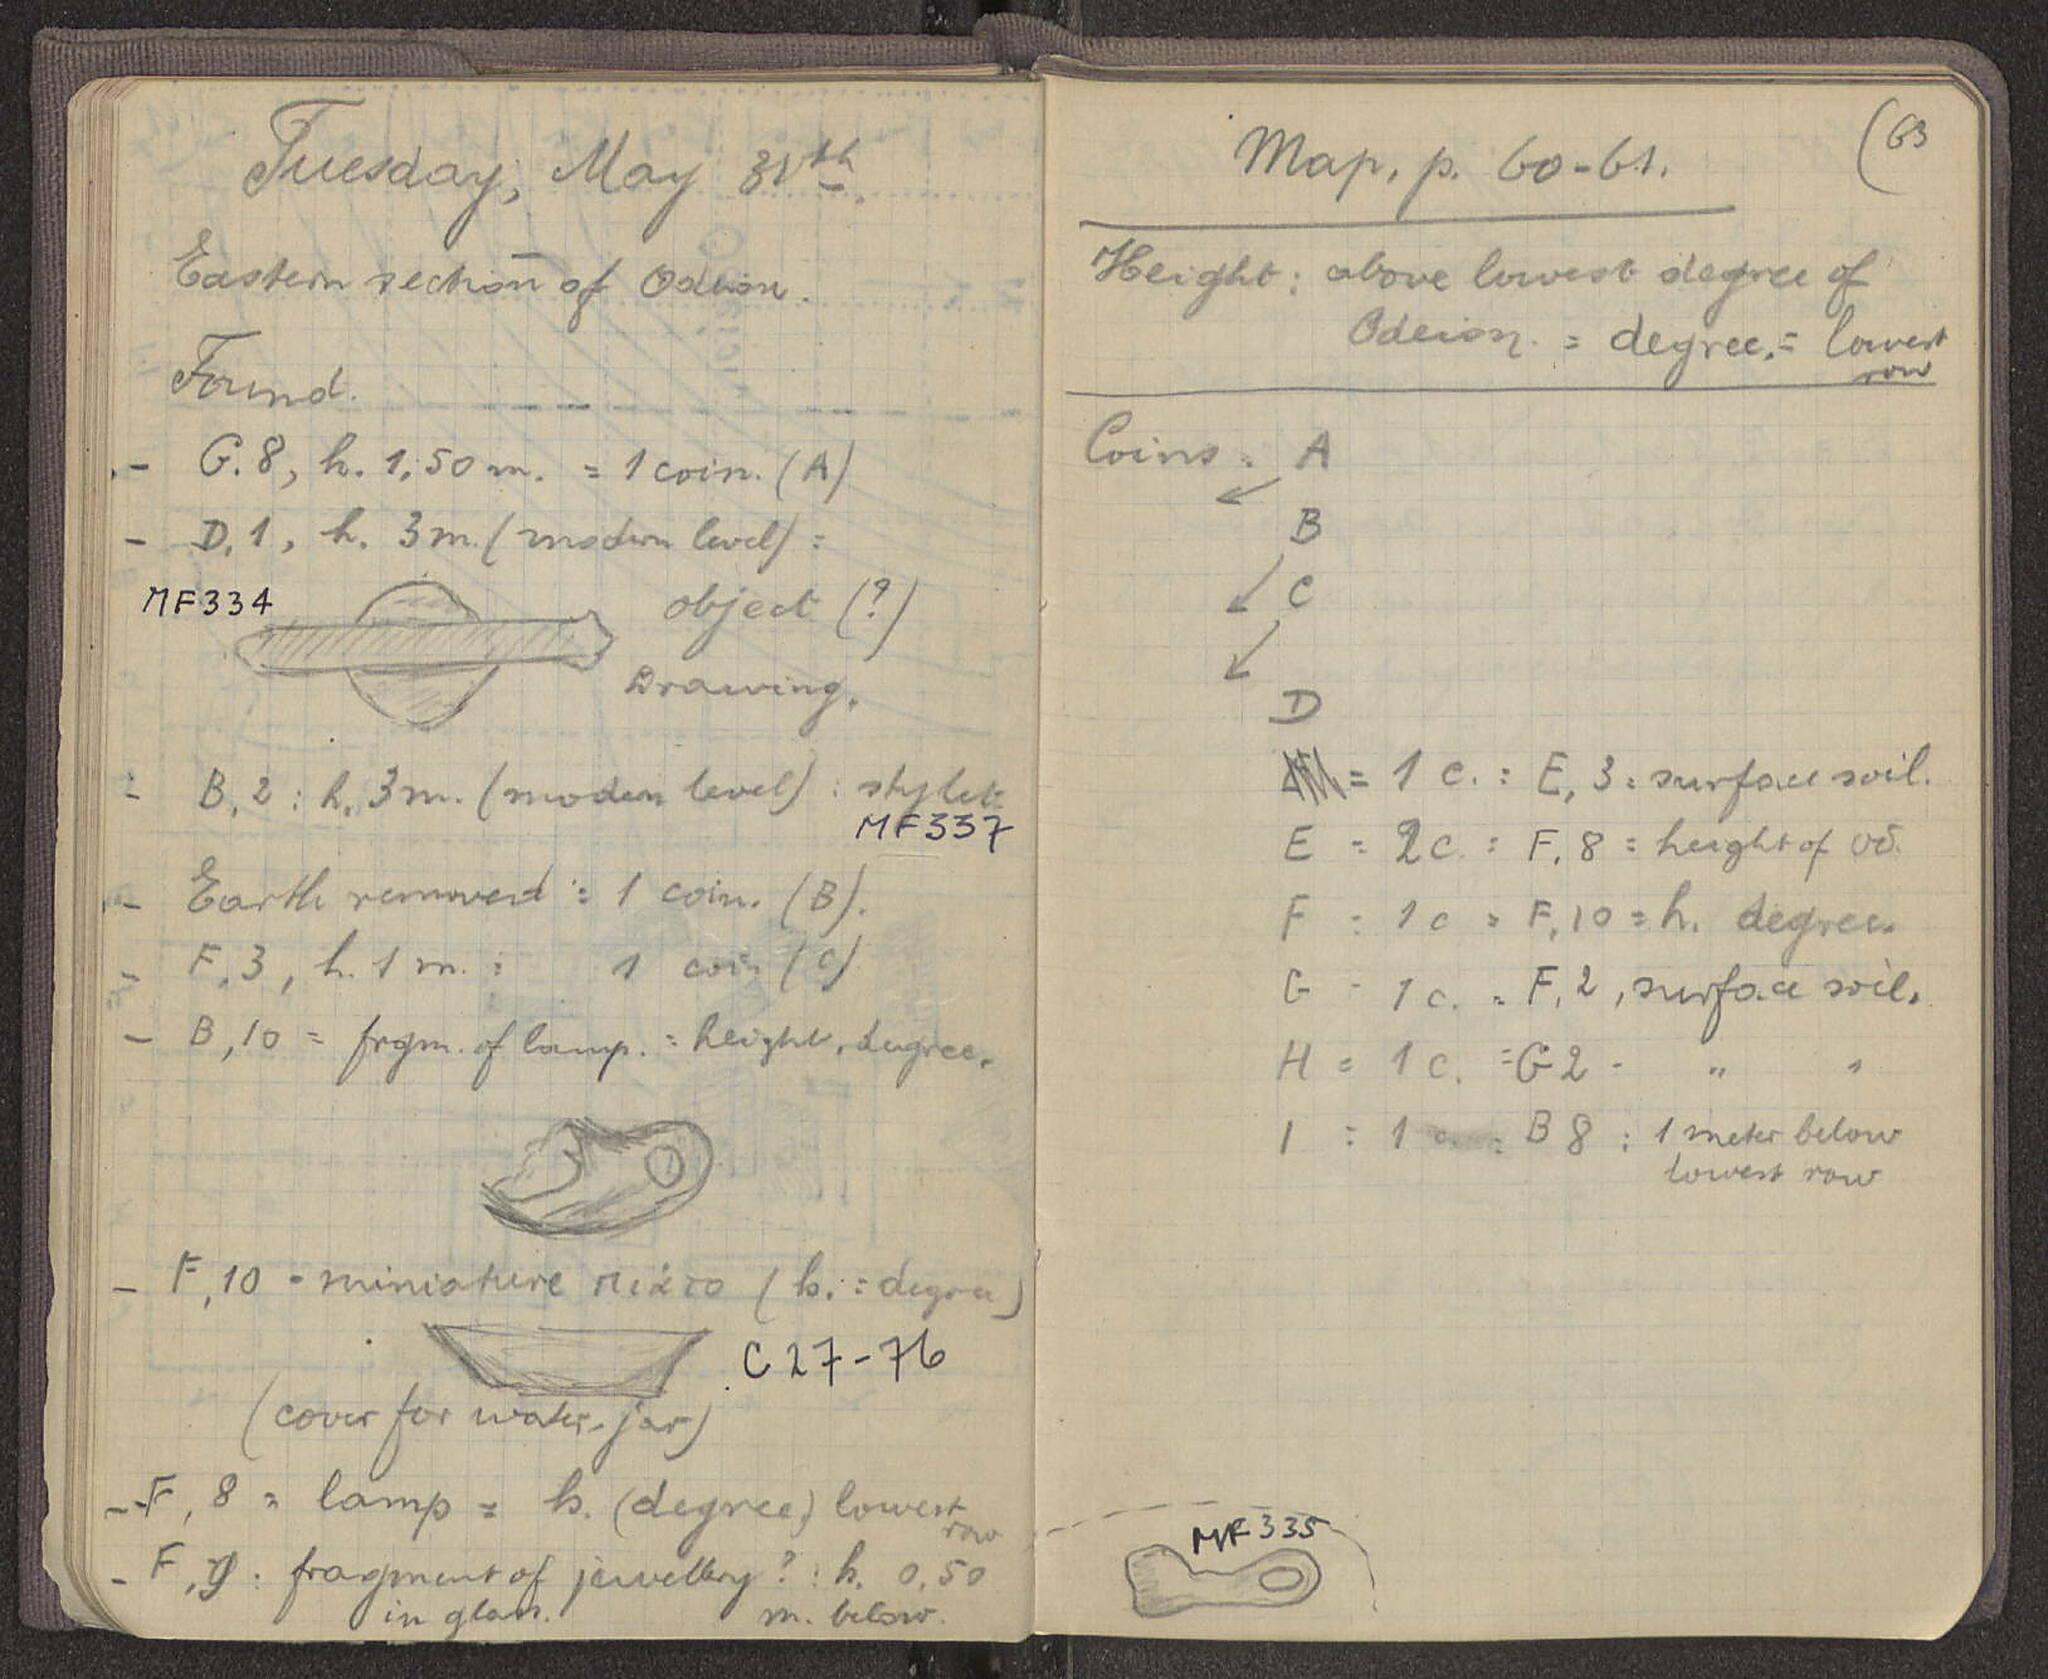 Tuesday, May 31th.
Eastern section of Odeion.
Found.
- G. 8, h. 1,50 m. = 1 coin. (A)
- D, 1, h. 3 m. (modern level) :
MF334
object (?)
Drawing.
- B, 2 : h. 3 m. (modern level) : stylet
MF337
- Earth removed : 1 coin. (B).
- F, 3, h. 1 m. : 1 coin (C)
- B, 10 = frgm. of lamp. = height, degree.
- F, 10 - miniature (h. = degree)
C 27-76
(cover for water-jar)
- F, 8 = lamp = h. (degree) lowest
row
- F, : fragment of jewellery ? : h. 0,50
in glass. m. below.
(63
Map, p. 60-61.
Height : above lowest degree of
Odeion. = degree. = lowest
row
Coins : A
B
C
D
= 1 c. : E, 3 : surface soil.
E = 2 c. : F, 8 = height of od.
F : 1 c = F, 10 = h. degree.
G - 1 c. = F, 2, surface soil.
H = 1 c. = G 2 - " "
I : 1 c. : B 8 : 1 meter below
lowest row
MF 335